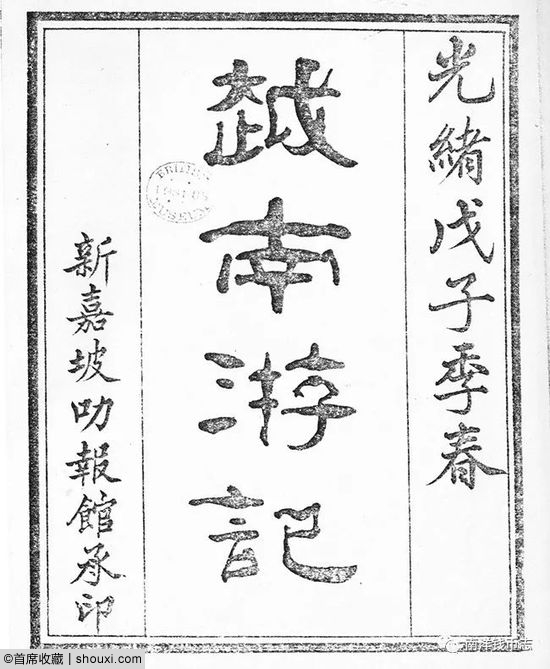 光緒戊子季春
越南游記
新嘉坡叻報館承印
BRITISH MUSEUM
©首席收藏 | shouxi.com
南洋钱币志